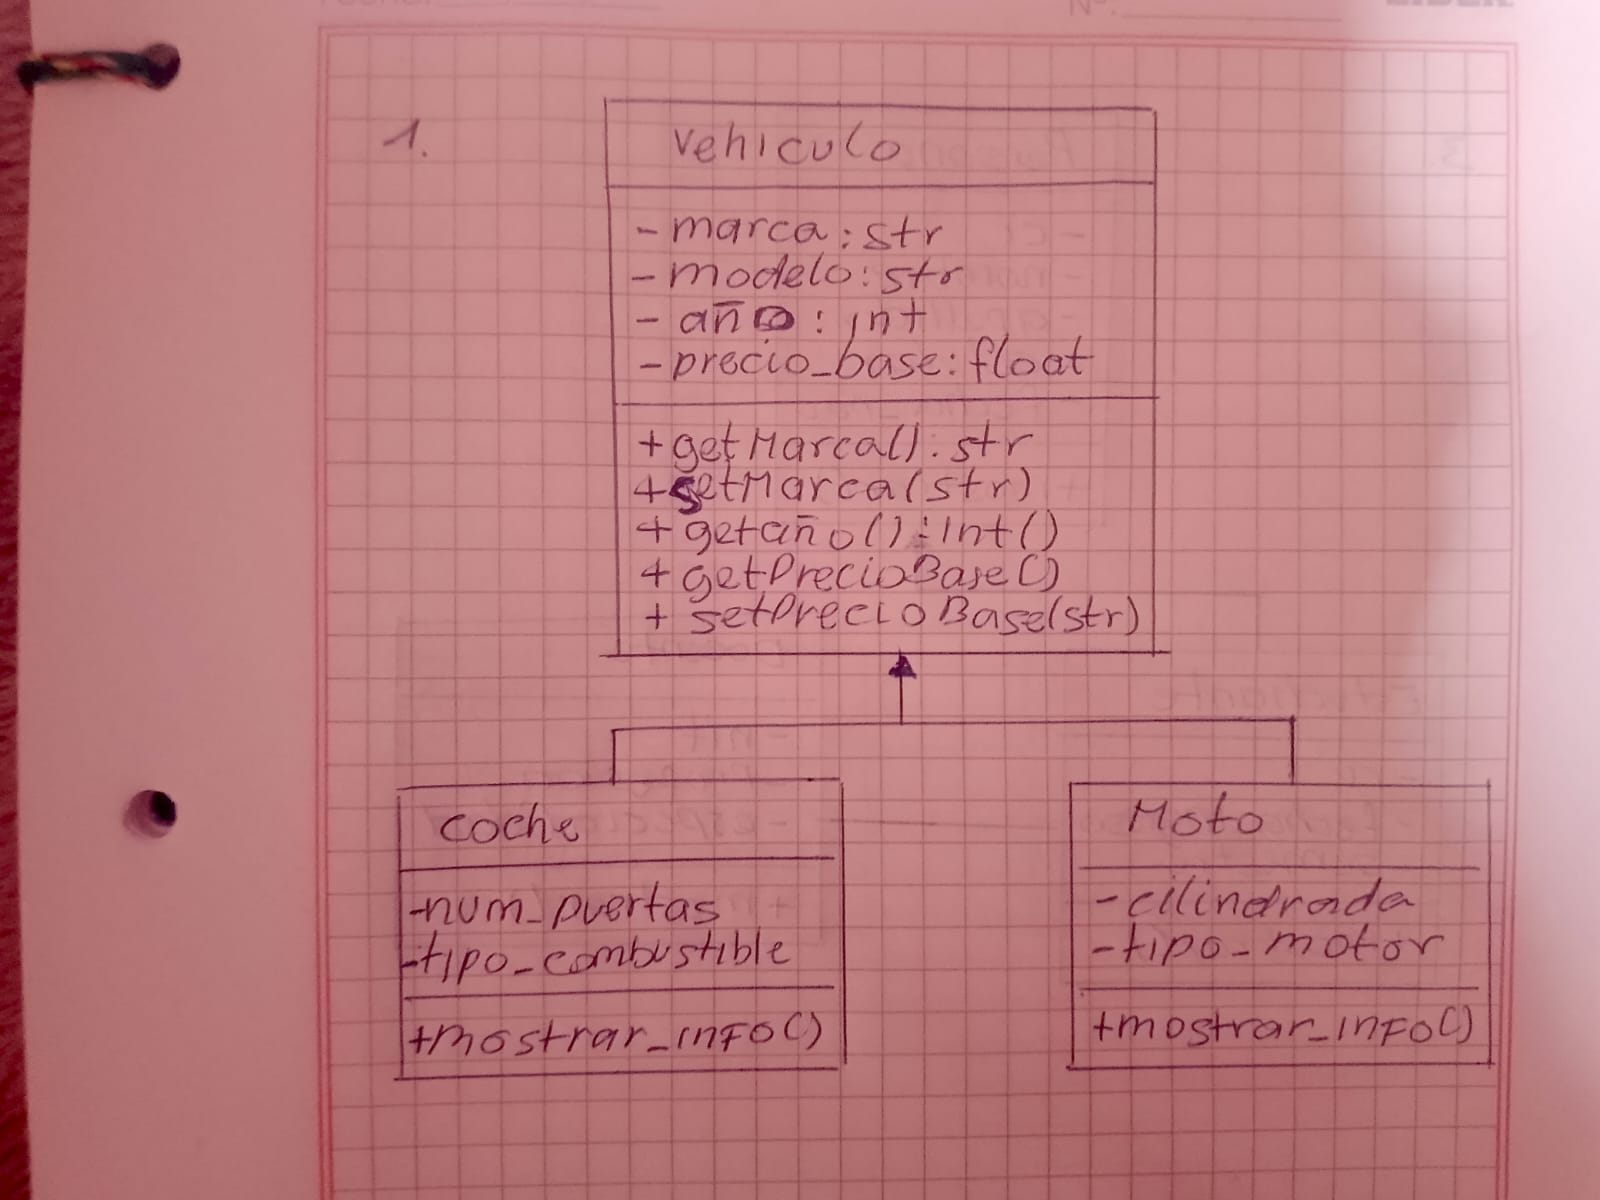 1.
Vehiculo
- marca: str
- modelo: str
- año: int
- precio_base: float
+ getMarca(): str
+ setMarca(str)
+ getaño(): Int()
+ getPrecioBase()
+ setPrecioBase(str)
coche
-num_puertas
-tipo_combustible
+mostrar_info()
Moto
-cilindrada
-tipo_motor
+mostrar_info()